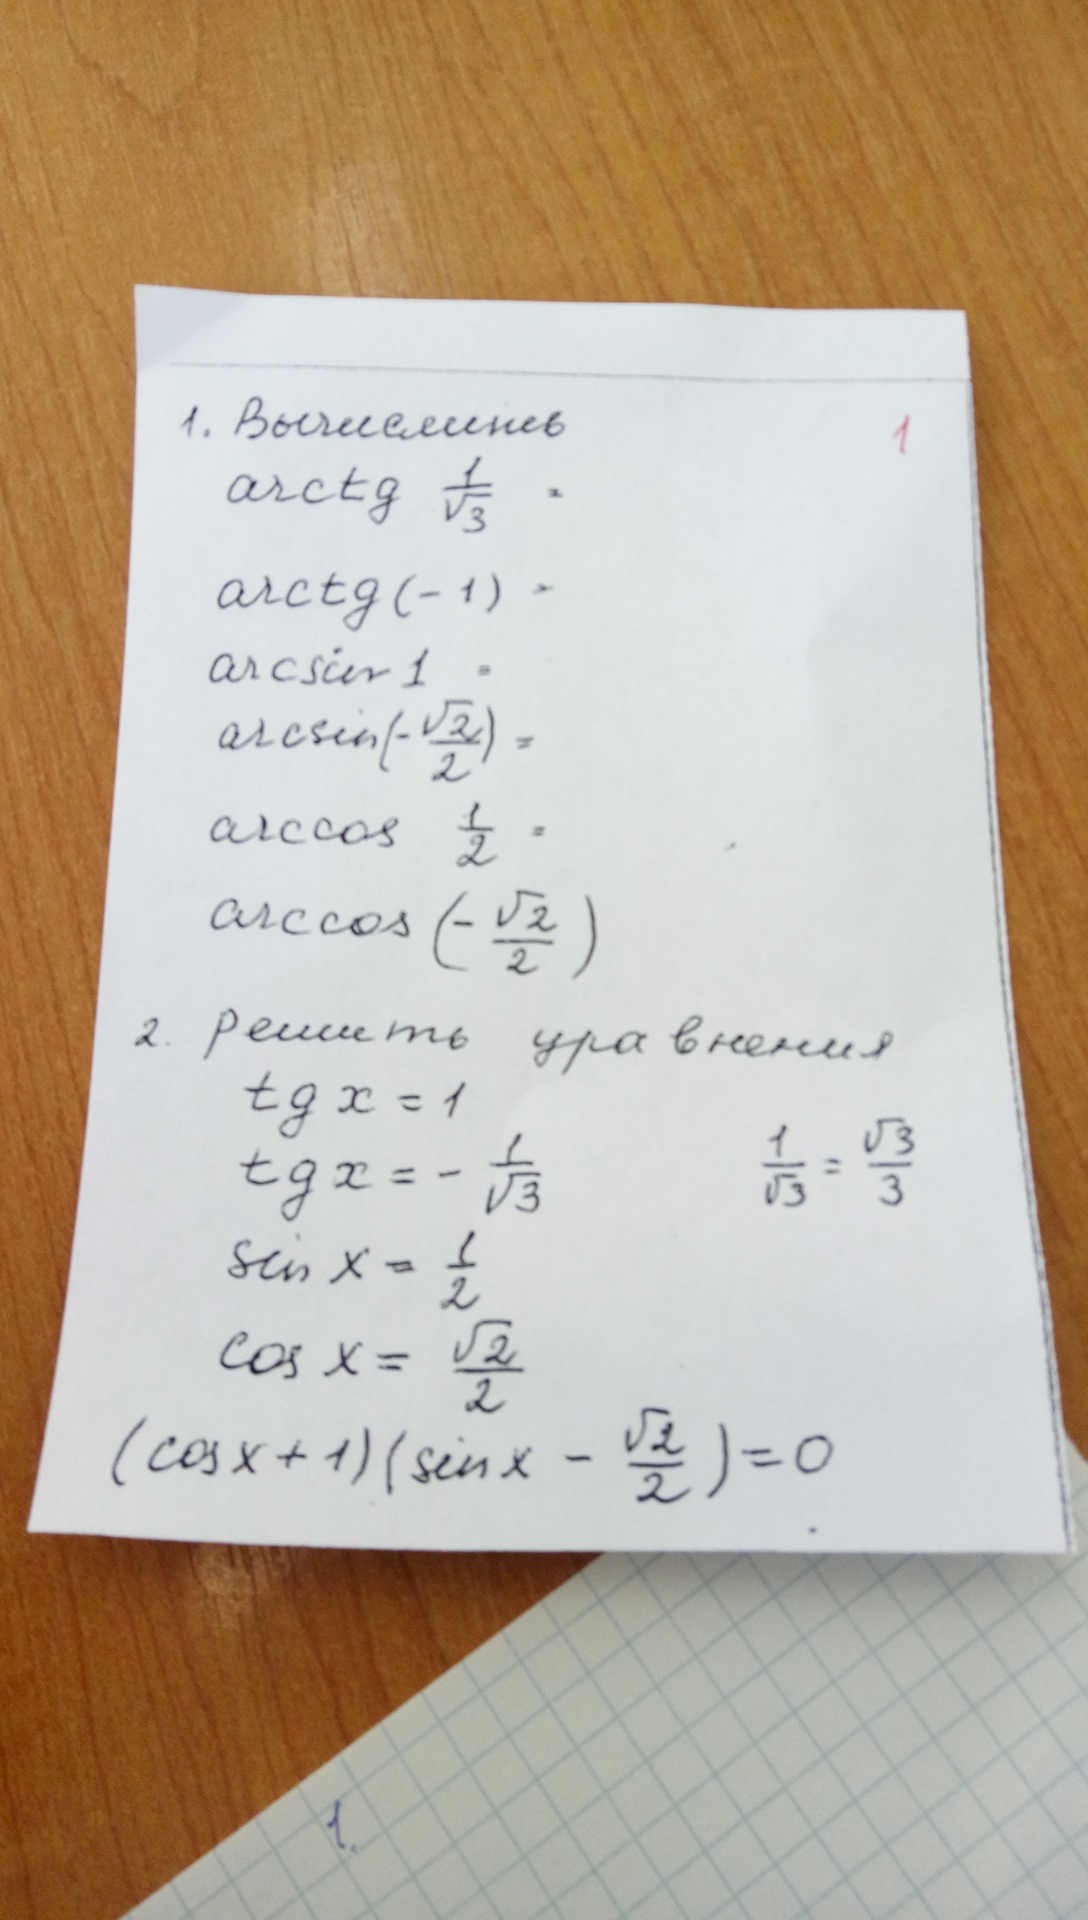 1. Вычислить 1
arctg 1/√3 =
arctg(-1) =
arcsin 1 =
arcsin(-√2/2) =
arccos 1/2 =
arccos (-√2/2)
2. Решить уравнения
tg x = 1
tg x = - 1/√3 1/√3 = √3/3
sin x = 1/2
cos x = √2/2
(cos x + 1)(sin x - √2/2) = 0
1.